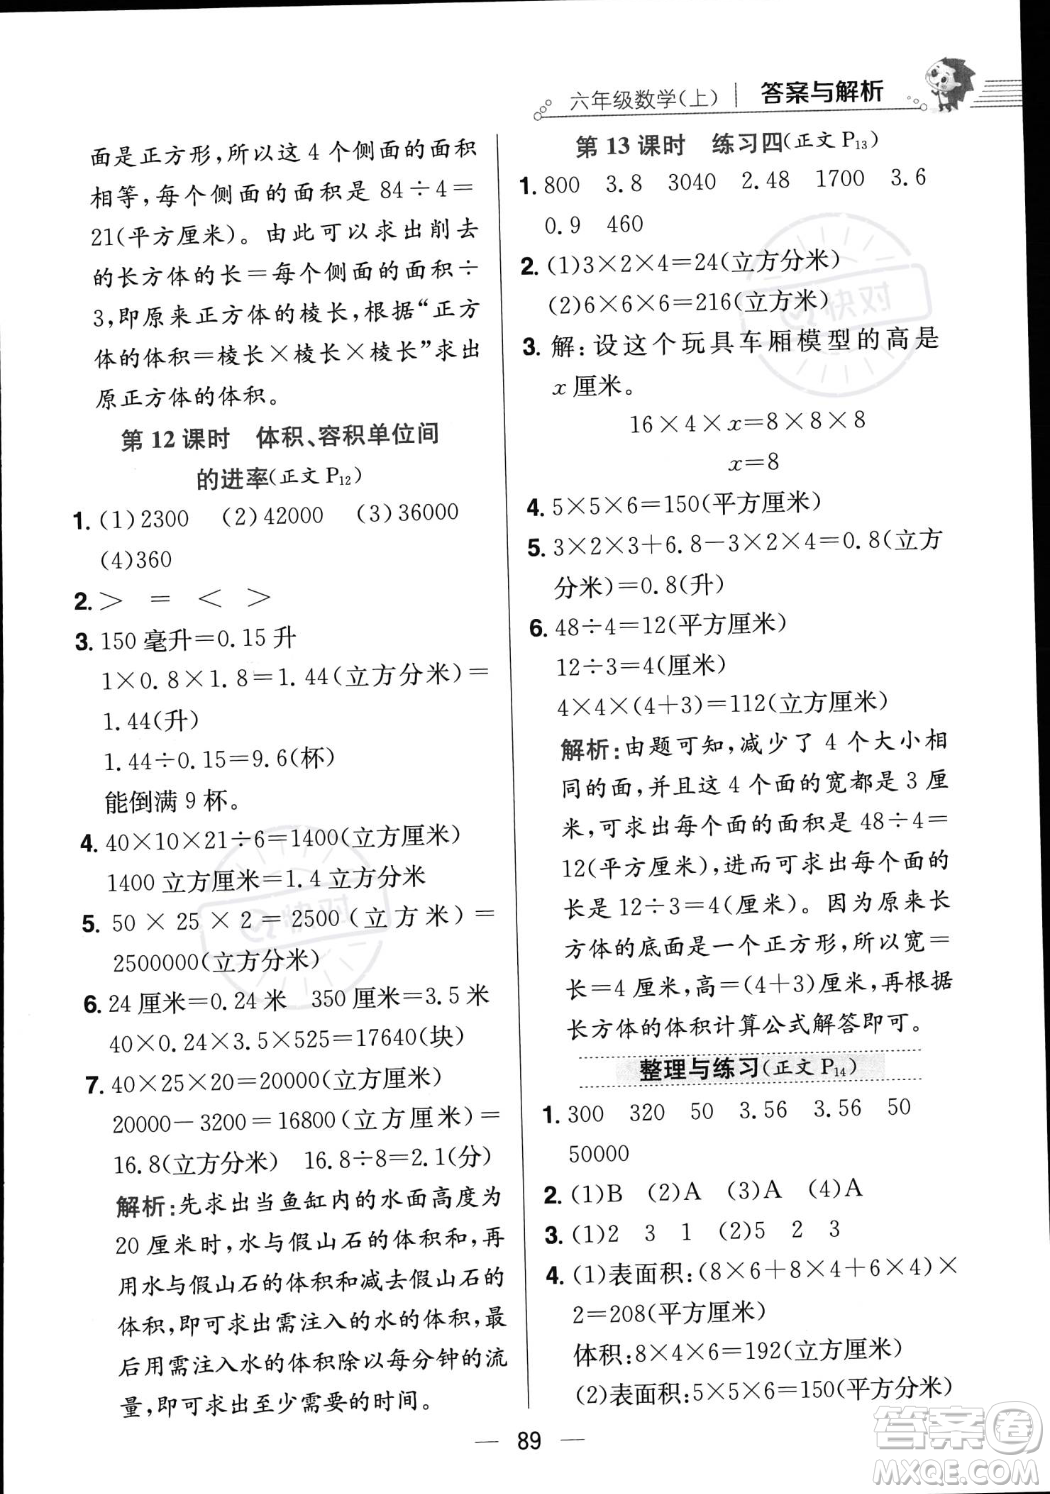 六年级数学(上) 答案与解析
面是正方形,所以这4个侧面的面积
相等,每个侧面的面积是84÷4=
21(平方厘米)。由此可以求出削去
的长方体的长=每个侧面的面积÷
3,即原来正方体的棱长,根据“正方
体的体积=棱长×棱长×棱长”求出
原正方体的体积。
第12课时 体积、容积单位间
的进率(正文P12)
1. (1)2300 (2)42000 (3)36000
(4)360
2. > = < >
3. 150毫升=0.15升
1×0.8×1.8=1.44(立方分米)=
1.44(升)
1.44÷0.15=9.6(杯)
能倒满9杯。
4. 40×10×21÷6=1400(立方厘米)
1400立方厘米=1.4立方分米
5. 50×25×2=2500(立方米)=
2500000(立方分米)
6. 24厘米=0.24米 350厘米=3.5米
40×0.24×3.5×525=17640(块)
7. 40×25×20=20000(立方厘米)
20000-3200=16800(立方厘米)=
16.8(立方分米) 16.8÷8=2.1(分)
解析:先求出当鱼缸内的水面高度为
20厘米时,水与假山石的体积和,再
用水与假山石的体积和减去假山石的
体积,即可求出需注入的水的体积,最
后用需注入水的体积除以每分钟的流
量,即可求出至少需要的时间。
第13课时 练习四(正文P13)
1. 800 3.8 3040 2.48 1700 3.6
0.9 460
2. (1)3×2×4=24(立方分米)
(2)6×6×6=216(立方米)
3. 解:设这个玩具车厢模型的高是
x厘米。
16×4×x=8×8×8
x=8
4. 5×5×6=150(平方厘米)
5. 3×2×3+6.8-3×2×4=0.8(立方
分米)=0.8(升)
6. 48÷4=12(平方厘米)
12÷3=4(厘米)
4×4×(4+3)=112(立方厘米)
解析:由题可知,减少了4个大小相
同的面,并且这4个面的宽都是3厘
米,可求出每个面的面积是48÷4=
12(平方厘米),进而可求出每个面的
长是12÷3=4(厘米)。因为原来长
方体的底面是一个正方形,所以宽=
长=4厘米,高=(4+3)厘米,再根据
长方体的体积计算公式解答即可。
整理与练习(正文P14)
1. 300 320 50 3.56 3.56 50
50000
2. (1)B (2)A (3)A (4)A
3. (1)2 3 1 (2)5 2 3
4. (1)表面积:(8×6+8×4+6×4)×
2=208(平方厘米)
体积:8×4×6=192(立方厘米)
(2)表面积:5×5×6=150(平方厘米)
— 89 —
快对
快对
答案圈
MXQE.COM